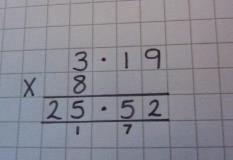 3.19
X 8
25.52
1 7